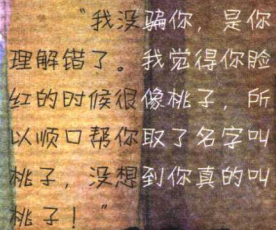 “我没骗你，是你
理解错了。我觉得你脸
红的时候很像桃子，所
以顺口帮你取了名字叫
桃子，没想到你真的叫
桃子！”